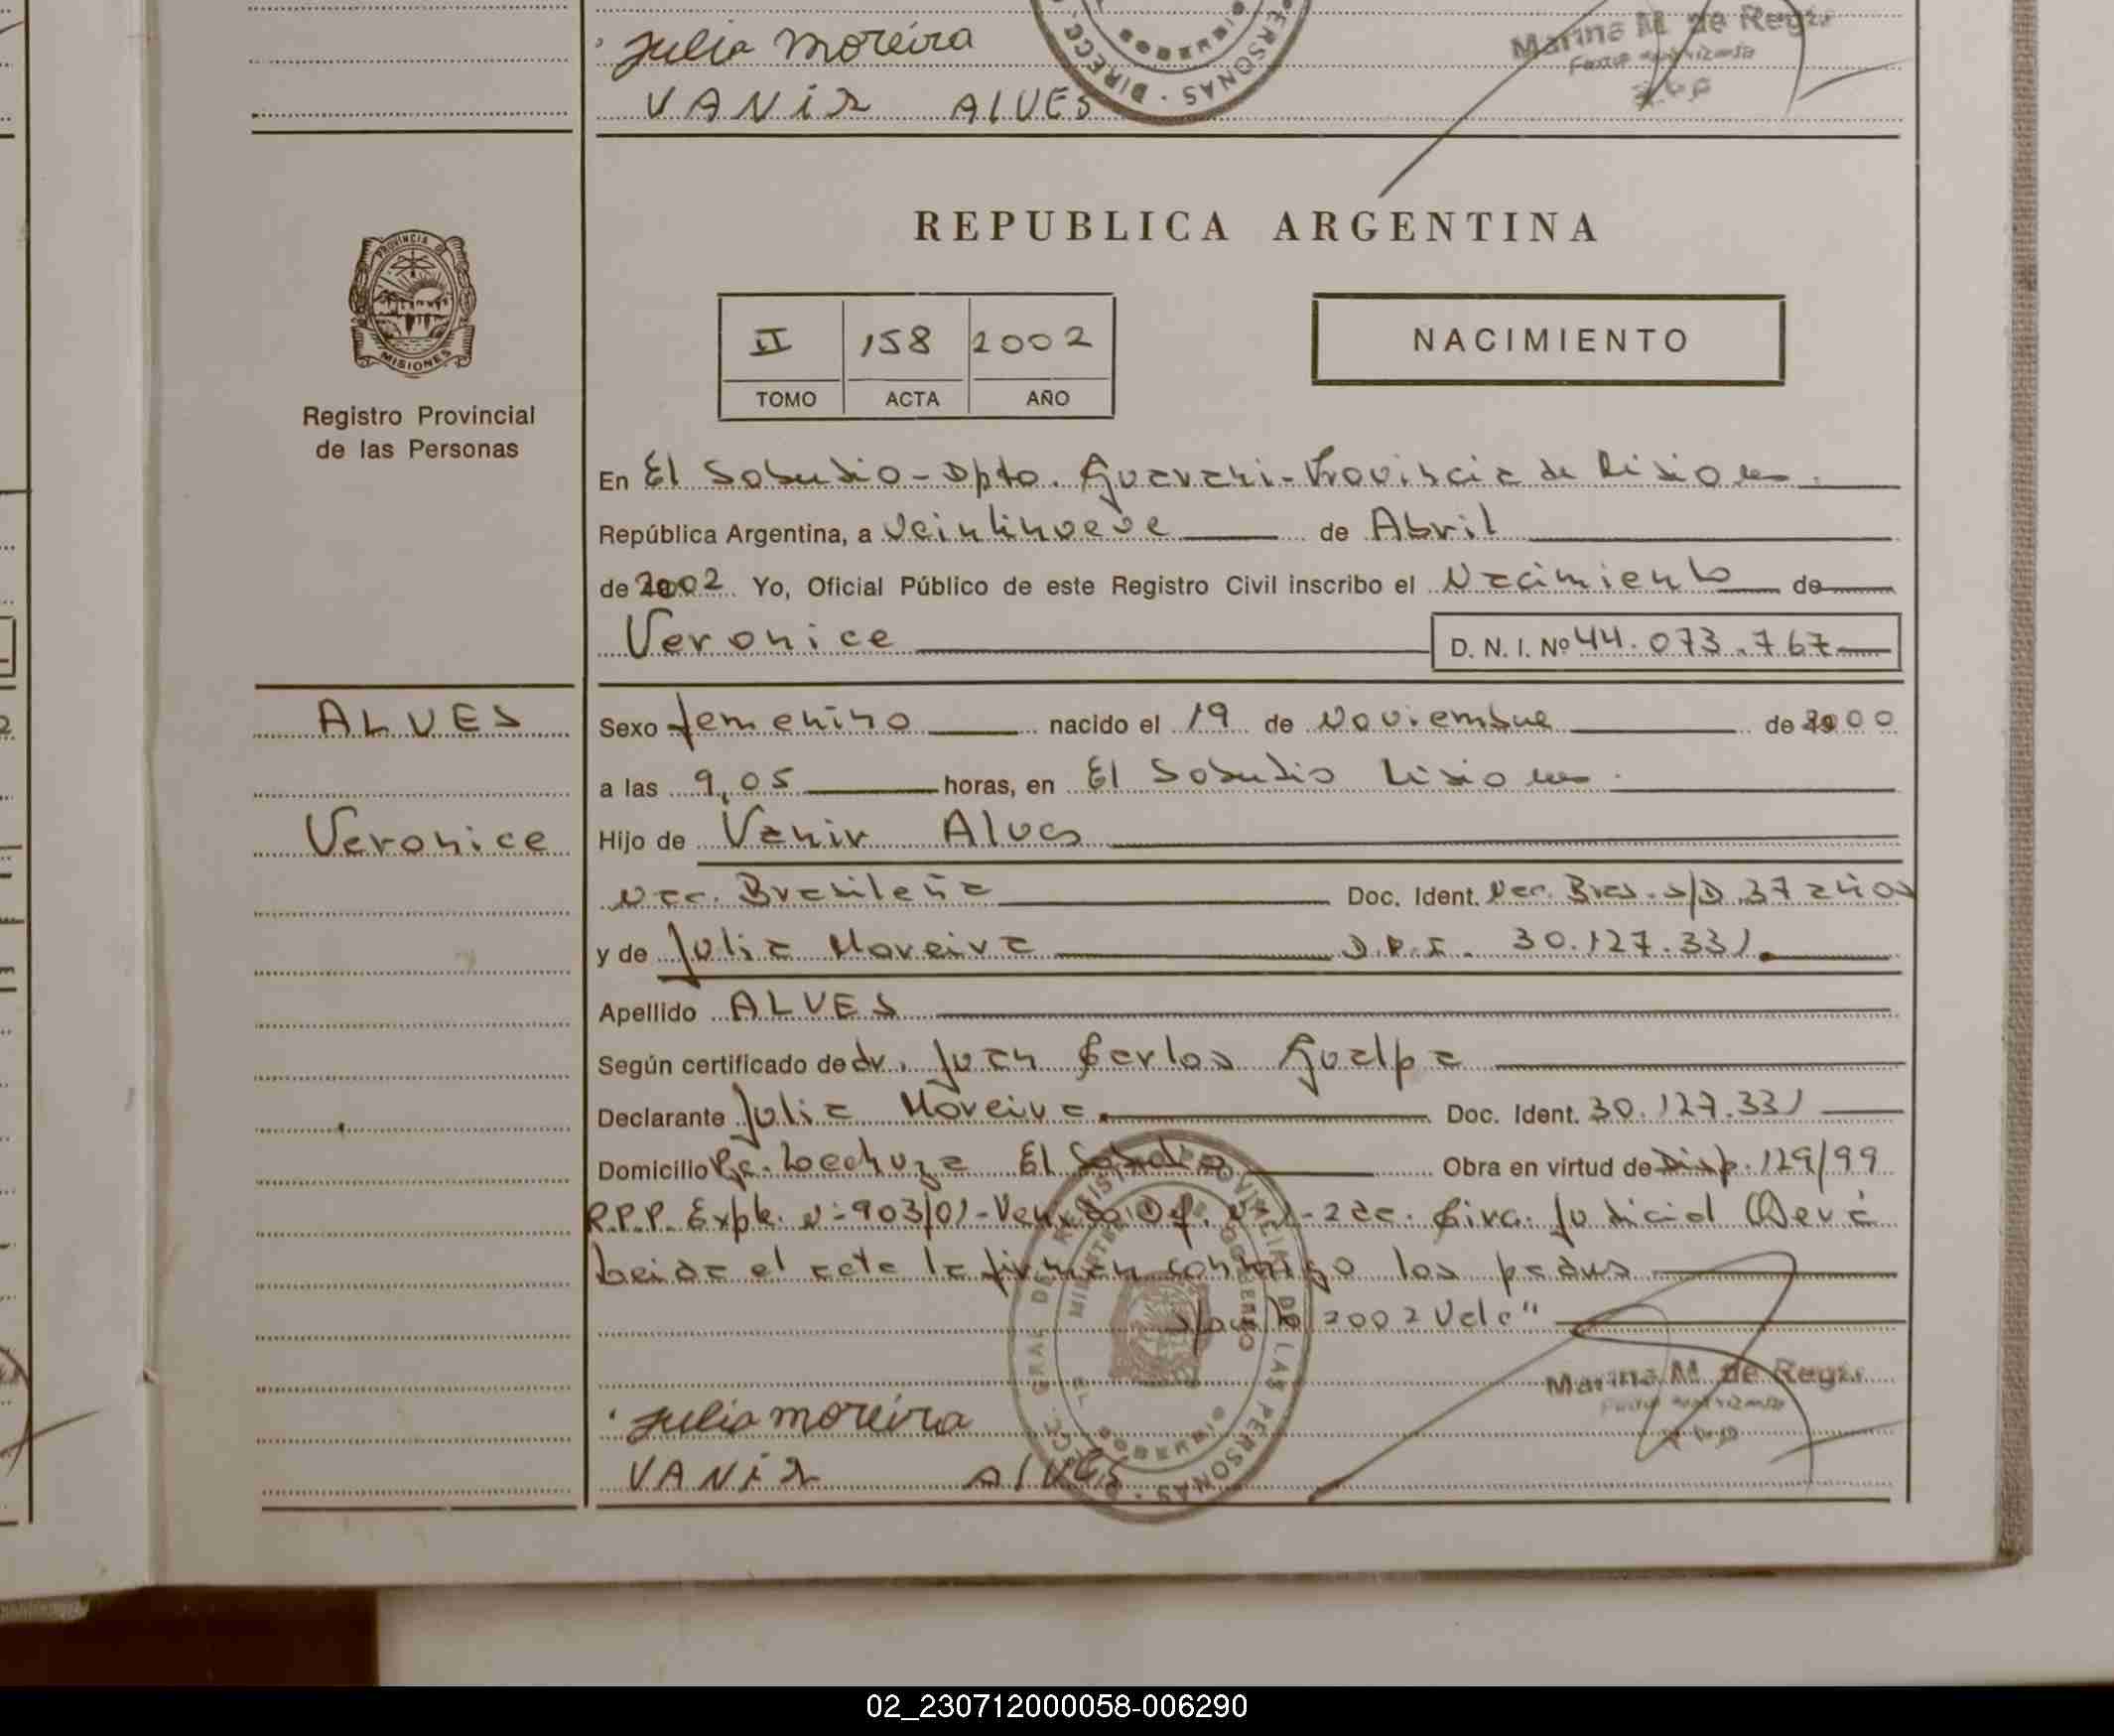 Julia Moreira
VANIR ALVES
DIRECC. PERSONAS
Marina M. de Regis
REPUBLICA ARGENTINA
PROVINCIA DE
MISIONES
Registro Provincial
de las Personas
II 158 2002
TOMO ACTA AÑO
NACIMIENTO
En El Soberbio - Dpto. Guarani - Provincia de Misiones
República Argentina, a Veintinueve de Abril
de 2002 Yo, Oficial Público de este Registro Civil inscribo el Nacimiento de
Veronice D. N. I. Nº 44.073.767
ALVES
Sexo femenino nacido el 19 de Noviembre de 2000
a las 9,05 horas, en El Soberbio Misiones
Veronice
Hijo de Vanir Alves
Nac. Brasileña Doc. Ident. Nac. Bras. s/D. 37 años
y de Julia Moreira D.N.I. 30.127.331
Apellido ALVES
Según certificado de dr. Juan Carlos Gualpa
Declarante Julia Moreira Doc. Ident. 30.127.331
Domicilio Pje. Lechuza El Soberbio Obra en virtud de Disp. 129/99
R.P.P. Expte. N= 903/01 - 2da. Circ. Judicial Oberá
Leida el acta la firman conmigo los padres
2002 Vale"
Marina M. de Regis
Julia Moreira
VANIR ALVES
02_230712000058-006290